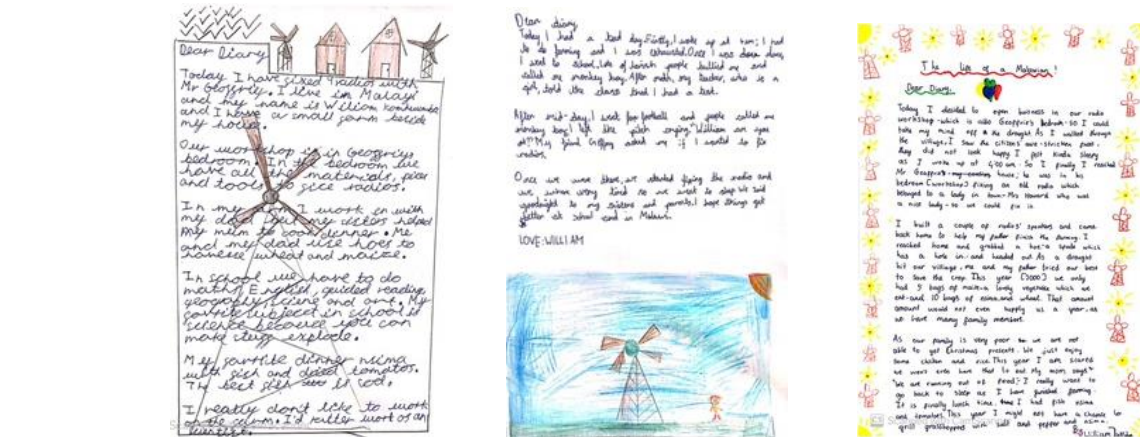 Dear Diary
Today I have fixed radios with
Mr Geoffriy. I live in Malayi
and my name is Wiliam kamkwamba
and I have a small farm beside
my house.
Our workshop is in Geoffriys
bedroom. In the bedroom we
have all the materials, pices
and tools to fice radios.
In my farm I work on with
my dad but my sisters helped
my mum to cook dinner. Me
and my dad use hoes to
wheat and maize.
In school we have to do
maths, English, guided reading,
geography, sciene and art. My
subject in school is
science because you can
make stuff explode.
My dinner nsima
with fish and tomatos.
The best fish is cod.
I really don't like to work
on the farm. I'd rather work as an
Dear diary,
Today I had a bad day. Firstly, I woke up at 4am; I had
to do farming and I was exhausted. Once I was done,
I went to school. Lots of people bullied me and
called me monkey boy. After math, my teacher, who is a
girl, told the class that I had a test.
After mid-day, I went for football and people called me
monkey boy. I left the pitch "William an apes
My friend asked me if I wanted to fix
radios.
Once we were there, we started fixing the radio and
we where very tired so we went to sleep. We said
goodnight to my sisters and parents. I hope things get
better at school and in Malawi.
LOVE: WILLIAM
The life of a Malawian!
Dear Diary,
Today I decided to open buisness in our radio
workshop - which is also Geoffrir's bedroom - so I could
take my mind off the drought. As I walked through
the village, I saw the citizens' past.
they did not look happy. I felt kinda sleepy
as I woke up at 4:00 am. So I finally I reached
Mr Geoffrir's house; he was in his
bedroom (workshop) fixing an old radio which
belonged to a lady in town - Mrs Howard who was
a nice lady - so we could fix it.
I built a couple of radios' speakers and came
back home to help my father finish the farming. I
reached home and grabbed a hoe - a spade which
has a hole in - and headed out. As a drought
hit our village, me and my father tried our best
to save the crop. This year we only
had 5 bags of maize - a lovely vegetable which we
eat - and 10 bags of and wheat. That amount
amount would not even supply us a year, as
we have many family members.
As our family is very poor so we are not
able to get Christmas presents. We just enjoy
some chicken and rice. This year I am scared
we won't even have that to eat. My mom says,
"We are running out of food!" I really want to
go back to sleep as I have farming.
It is finally lunch time, I had fish nsima
and tomatoes. This year I might not have a chance to
grasshoppers with salt and pepper and nsima.
By William